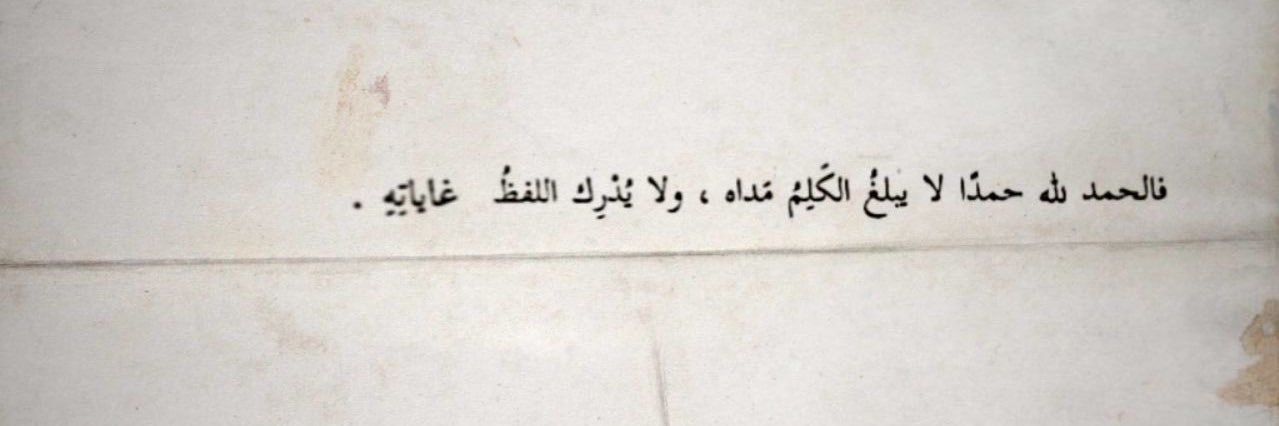 فالحمد لله حمدًا لا يبلغُ الكَلِمُ مَداه ، ولا يُدْرِك اللفظُ غاياتِهِ .